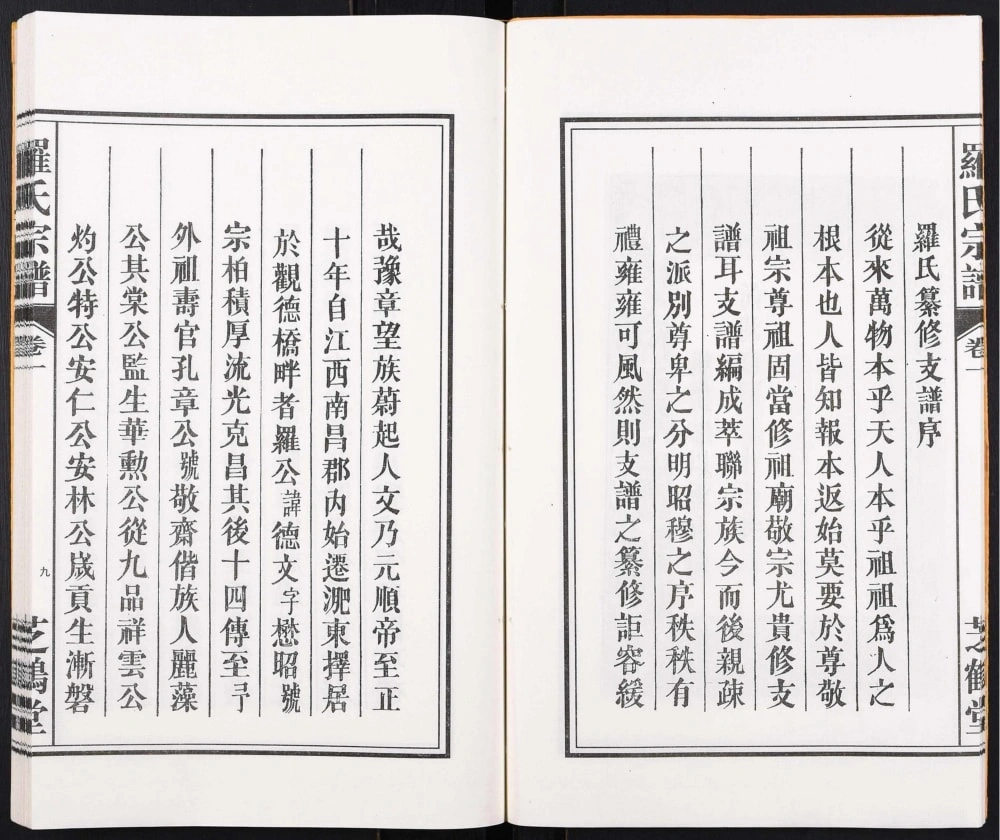 羅氏宗譜
卷一
芝鶴堂
羅氏纂修支譜序
從來萬物本乎天人本乎祖祖爲人之
根本也人皆知報本返始莫要於尊敬
祖宗尊祖固當修祖廟敬宗尤貴修支
譜耳支譜編成萃聯宗族今而後親疎
之派別尊卑之分明昭穆之序秩秩有
禮雍雍可風然則支譜之纂修詎容緩
哉豫章望族蔚起人文乃元順帝至正
十年自江西南昌郡內始遷淝東擇居
於觀德橋畔者羅公諱德文字懋昭號
宗柏積厚流光克昌其後十四傳至予
外祖壽官孔章公號敬齋偕族人麗藻
公其棠公監生華勲公從九品祥雲公
灼公特公安仁公安林公歲貢生漸磐
羅氏宗譜
卷一
九
芝鶴堂